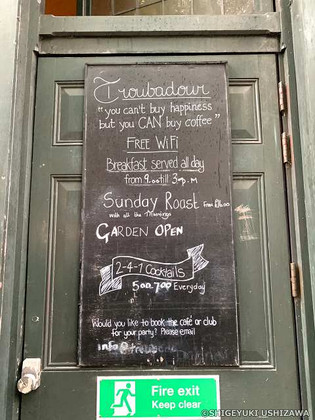 Troubadour
"you can't buy happiness
but you CAN buy coffee"
FREE WiFi
Breakfast served all day
from 9.00 till 3 p.m
Sunday Roast from
with all the Trimmings
GARDEN OPEN
2-4-1 Cocktails
Everyday
Would you like to book the café or club
for your party? Please email
info@
Fire exit
Keep clear
©SHIGEYUKI_USHIZAWA